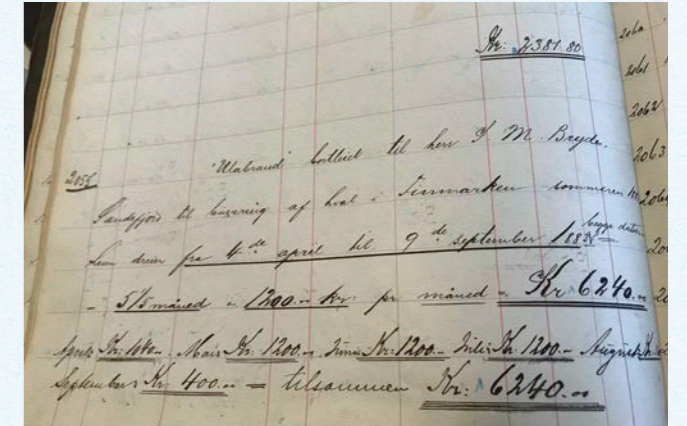 Kr: 2381.80
2060
2061
2062
2063
"Ulabrand" bortleiet til herr I. M. Bryde,
Sandefjord til buxering af hval i Finmarken sommeren
fra 4de april til 9de september 188 begge datoer
5 1/5 måned à 1200.- kr: pr måned = Kr 6240.-
April Kr: 1040.- Mai Kr: 1200.- Juni Kr: 1200.- Juli Kr. 1200.- August Kr
September Kr. 400.- = tilsammen Kr: 6240.-